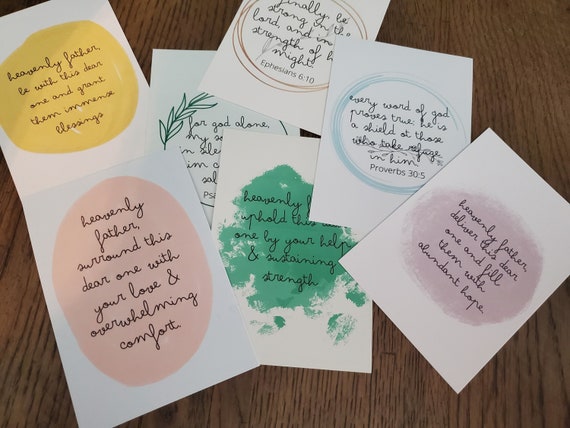 heavenly father,
be with this dear
one and grant
them immense
blessings
Finally, be
strong in the
lord, and in the
strength of his
might.
Ephesians 6:10
for god alone,
my so
in sile
Ps
every word of god
proves true: he is
a shield ot those
who take refuge
in him
Proverbs 30:5
heavenly
father,
surround this
dear one with
your love &
overwhelming
comfort.
heavenly f
uphold this
one by your help
& sustaining
strength
heavenly father,
deliver this dear
one and fill
them with
abundant hope.